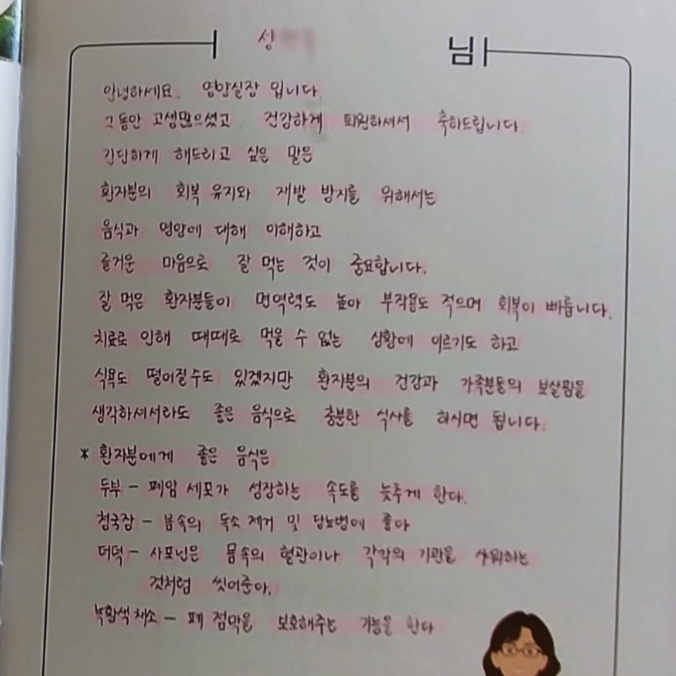 성 님
안녕하세요. 영양실장 입니다.
그동안 고생많으셨고 건강하게 퇴원하셔서 축하드립니다.
간단하게 해드리고 싶은 말은
환자분의 회복 유지와 재발 방지를 위해서는
음식과 영양에 대해 이해하고
즐거운 마음으로 잘 먹는 것이 중요합니다.
잘 먹은 환자분들이 면역력도 높아 부작용도 적으며 회복이 빠릅니다.
치료로 인해 때때로 먹을 수 없는 상황에 이르기도 하고
식욕도 떨어질수도 있겠지만 환자분의 건강과 가족분들의 보살핌을
생각하셔서라도 좋은 음식으로 충분한 식사를 하시면 됩니다.
* 환자분에게 좋은 음식은
두부 - 폐암 세포가 성장하는 속도를 늦추게 한다.
청국장 - 몸속의 독소 제거 및 당뇨병에 좋아
더덕 - 사포닌은 몸속의 혈관이나 각각의 기관을 샤워하는
것처럼 씻어준다.
녹황색 채소 - 폐 점막을 보호해주는 기능을 한다